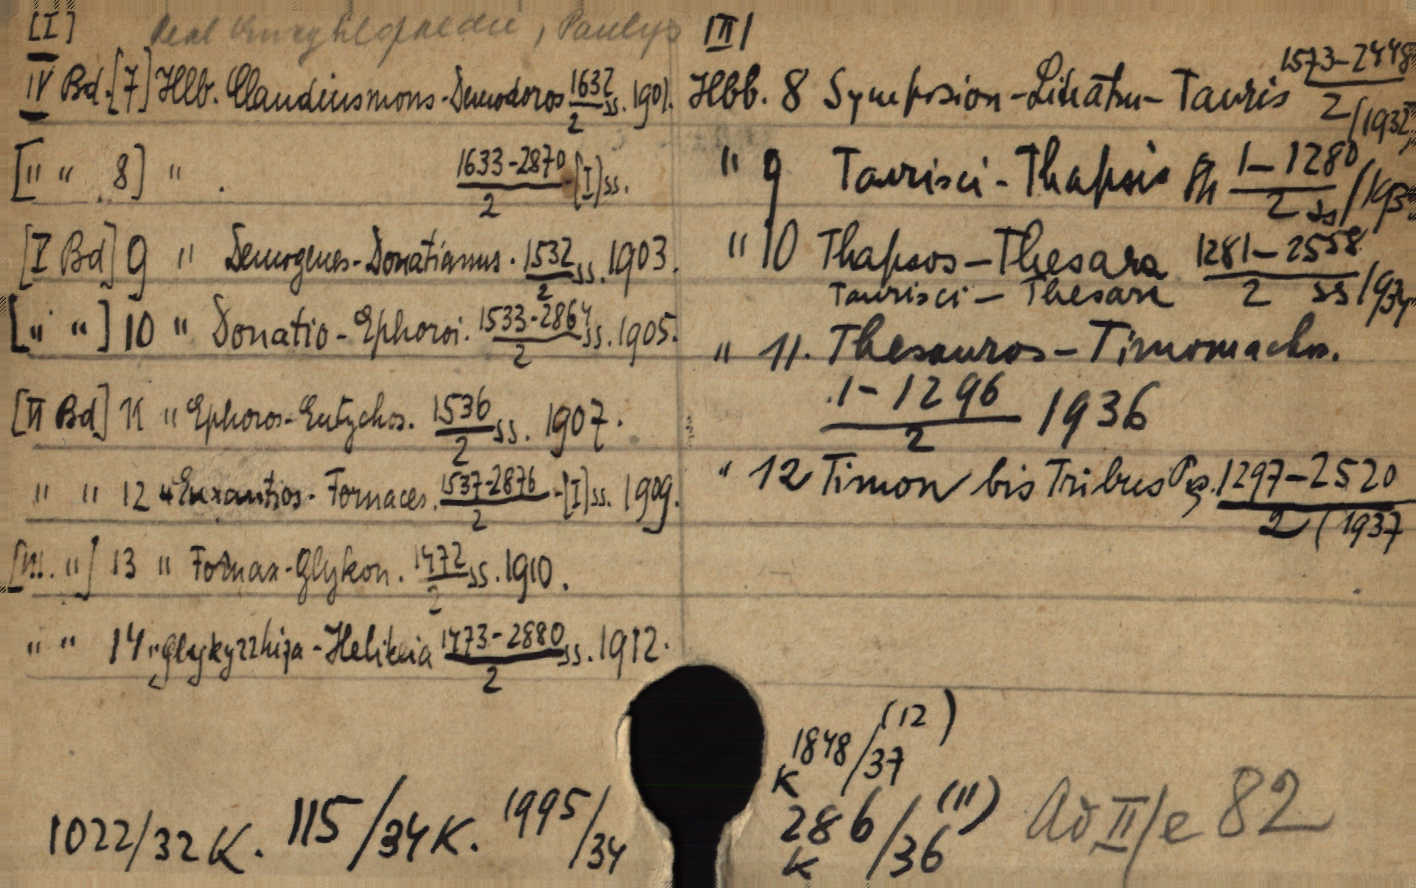 [I] Real Encyklopaedie, Paulys
IV Bd. [7] Hlb. Claudiusmons-Demodoros 1632/2 ss. 1901.
[" " 8] " . 1633-2870/2 -[I] ss.
[I Bd] 9 " Demogenes-Donatianus. 1532/2 ss. 1903.
[" "] 10 " Donatio-Ephoroi. 1533-2864/2 ss. 1905.
[II Bd] 11 " Ephoros-Eutychos. 1536/2 ss. 1907.
" " 12 " Euxantios-Fornaces. 1537-2876/2 -[I] ss. 1909.
[III. "] 13 " Fornax-Glykon. 1472/2 ss. 1910.
" " 14 " Glykyrrhiza-Helikeia 1473-2880/2 ss. 1912.
1022/32 K. 115/34 K. 1995/34
III
Hbb. 8 Symposion - Tauris 1573-2448/2 /1932
" 9 Taurisci - Thapsis 1-1280/2 ss
" 10 Thapsos - Thesara 1281-2558/2 ss/1934
Taurisci - Thesara
" 11. Thesauros - Timomachos.
1-1296/2 1936
" 12 Timon bis Tribus Pg. 1297-2520/2 (1937
K 1848/37 (12)
K 286/36 (11)
Ad II/e 82